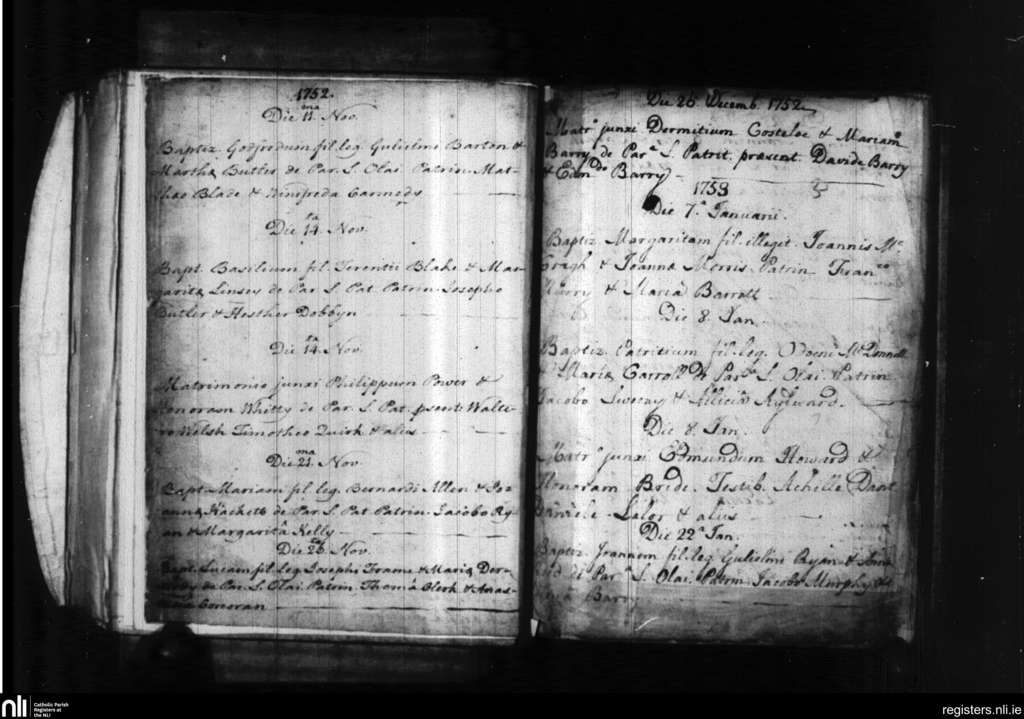 1752.
Die 11.ma Nov.
Baptiz. Godfridum fil. leg. Gulielmi Barton &
Martha Butler de Par. S. Olai Patrin. Mat-
theo Blade & Winifreda Carmedy
Die 14.ta Nov.
Bapt. Basilium fil. Terentii Blake & Mar-
garita Linsey de Par S. Pat Patrin. Josepho
Butler & Hesther Dobbyn
Die 14.ta Nov.
Matrimonio junxi Philippum Power &
Honoram Whitty de Par. S. Pat. psent: Walte-
ro Welsh Timotheo Quirk & aliis
Die 21.ma Nov.
Bapt. Mariam fil. leg. Bernardi Allen & Joa
anna Hackett de Par. S. Pat Patrin. Jacobo Ry-
an & Margaritâ Kelly
Die 26. Nov.
Bapt. Lucam fil. leg. Josephi Frame & Maria
de Par. S. Olai. Patrin. Thomâ Clerk & Anas-
Conoran
Die 26. Decemb. 1752.
Matr.o junxi Dermitium Costeloe & Mariam
Barry de Par.a S. Patrit. præsent. Davide Barry
& Edm.do Barry
1753
Die 7.a Januarii.
Baptiz. Margaritam fil. illegit. Joannis Mc
Gragh & Joanna Morris. Patrin Fran.co
Murry & Mariâ Barrott
Die 8. Jan.
Baptiz. Patritium fil. leg. Odoeni McDonnell
& Maria Carroll de Par.a S. Olai. Patrin
Jacobo Sweeny & Alliciâ Aylward.
Die 8. Jan.
Matr.o junxi Edmundum Howard &
Honoram Brede. Testib. Achille Dant
Daniele Lalor & aliis
Die 22.a Jan.
Baptiz. Joannem fil. leg. Gulielmi Ryan &
de Par.a S. Olai. Patrin. Jacobo Murphy &
Barry
nli
Catholic Parish
Registers at
the NLI
registers.nli.ie